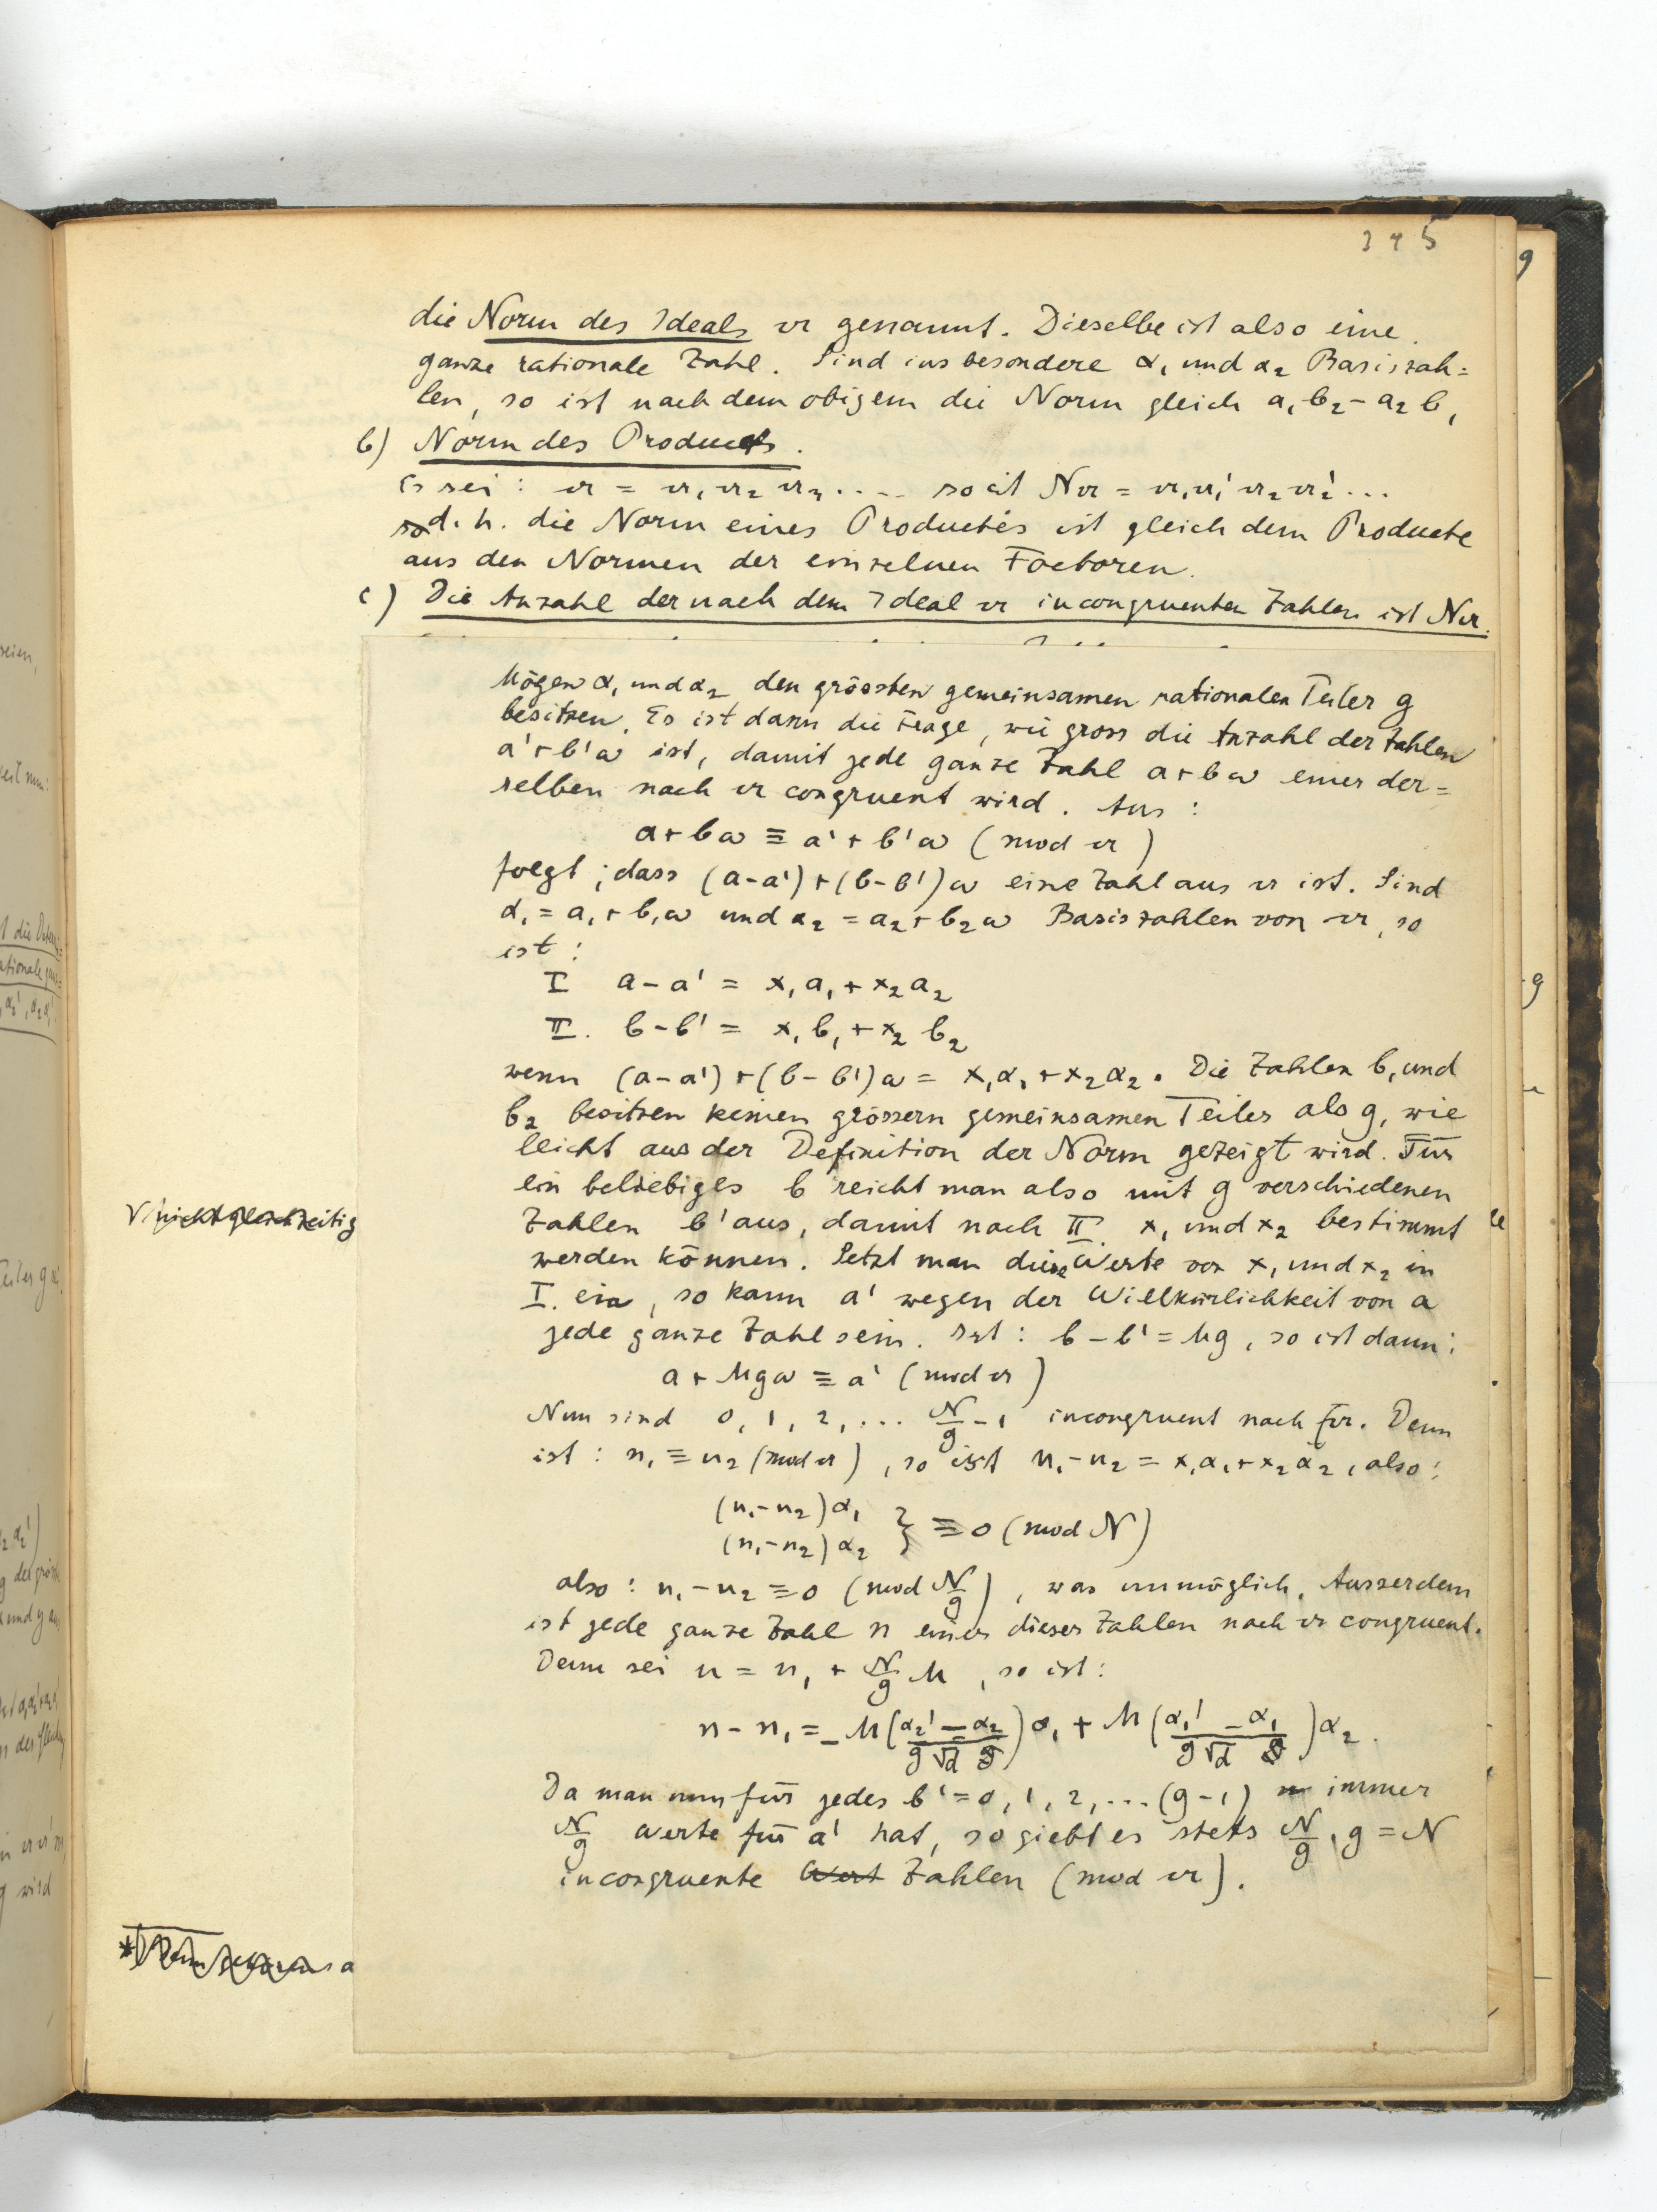 345
die Norm des Ideals 𝔞 genannt. Dieselbe ist also eine
ganze rationale Zahl. Sind insbesondere α₁ und α₂ Basiszah=
len, so ist nach dem obigem die Norm gleich a₁b₂ - a₂b₁
b) Norm des Products.
Es sei: 𝔞 = 𝔞₁ 𝔞₂ 𝔞₃ ..... so ist N𝔞 = 𝔞₁𝔞₁' 𝔞₂𝔞₂' ...
d. h. die Norm eines Productes ist gleich dem Producte
aus den Normen der einzelnen Factoren.
c) Die Anzahl der nach dem Ideal 𝔞 incongruenten Zahlen ist N𝔞.
Mögen α₁ und α₂ den grössten gemeinsamen rationalen Teiler g
besitzen. Es ist dann die Frage, wie gross die Anzahl der Zahlen
a' + b'ω ist, damit jede ganze Zahl a + bω einer der=
selben nach 𝔞 congruent wird. Aus:
a + bω ≡ a' + b'ω (mod 𝔞)
folgt, dass (a-a') + (b-b')ω eine Zahl aus 𝔞 ist. Sind
α₁ = a₁ + b₁ω und α₂ = a₂ + b₂ω Basiszahlen von 𝔞, so
ist:
I a - a' = x₁a₁ + x₂a₂
II. b - b' = x₁b₁ + x₂b₂
wenn (a-a') + (b-b')ω = x₁α₁ + x₂α₂. Die Zahlen b₁ und
b₂ besitzen keinen grössern gemeinsamen Teiler als g, wie
leicht aus der Definition der Norm gezeigt wird. Für
ein beliebiges b reicht man also mit g verschiedenen
V nicht gleichzeitig
Zahlen b' aus, damit nach II. x₁ und x₂ bestimmt
werden können. Setzt man diese Werte von x₁ und x₂ in
I. ein, so kann a' wegen der Willkürlichkeit von a
jede ganze Zahl sein. Ist: b - b' = Mg, so ist dann:
a + Mgω ≡ a' (mod 𝔞)
Nun sind 0, 1, 2, ... N/g - 1 incongruent nach 𝔞. Denn
ist: n₁ ≡ n₂ (mod 𝔞), so ist n₁ - n₂ = x₁α₁ + x₂α₂, also:
(n₁-n₂)α₁
(n₁-n₂)α₂ } ≡ 0 (mod N)
also: n₁ - n₂ ≡ 0 (mod N/g), was unmöglich. Ausserdem
ist jede ganze Zahl n einer dieser Zahlen nach 𝔞 congruent.
Denn sei n = n₁ + N/g M, so ist:
n - n₁ = -M((α₂' - α₂)/(g√d))α₁ + M((α₁' - α₁)/(g√d))α₂.
Da man nun für jedes b' = 0, 1, 2, ... (g-1) immer
N/g Werte für a' hat, so giebt es stets N/g · g = N
incongruente Wert Zahlen (mod 𝔞).